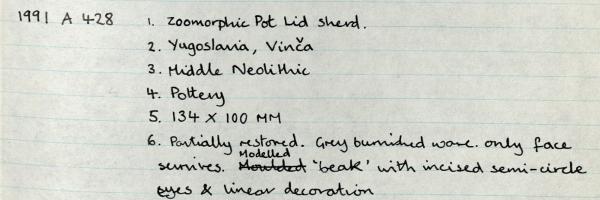 1991 A 428 1. Zoomorphic Pot Lid sherd.
2. Yugoslavia, Vinča
3. Middle Neolithic
4. Pottery
5. 134 x 100 MM
6. Partially restored. Grey burnished ware. only face
survives. Modelled 'beak' with incised semi-circle
eyes & linear decoration